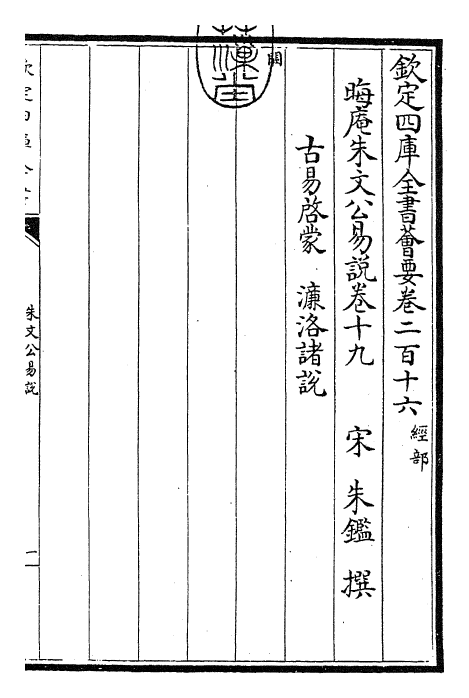 欽定四庫全書薈要卷二百十六 經部
晦庵朱文公易說卷十九 宋 朱鑑 撰
古易啓蒙 濂洛諸說
朱文公易說
一